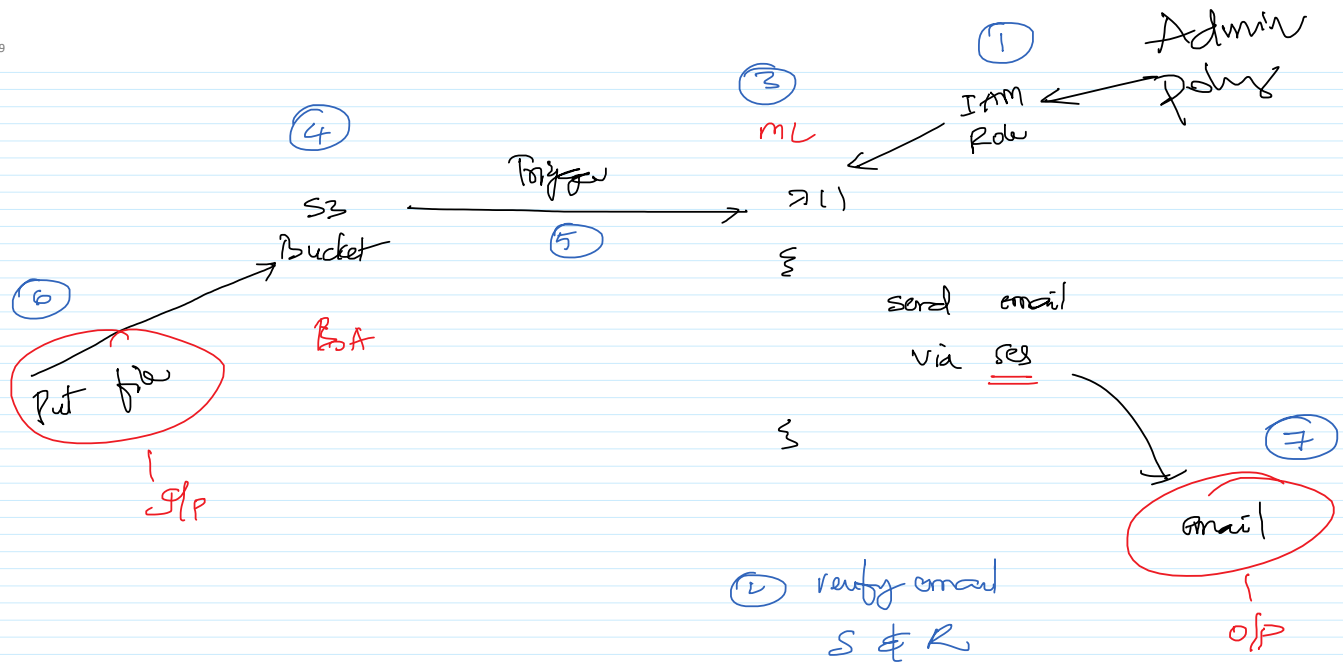 9
1
Admin
policy
IAM
Role
3
ML
4
S3
Bucket
Trigger
5
λ()
{
send email
via ses
}
6
Put file
I/P
7
email
O/P
2 verify email
S & R